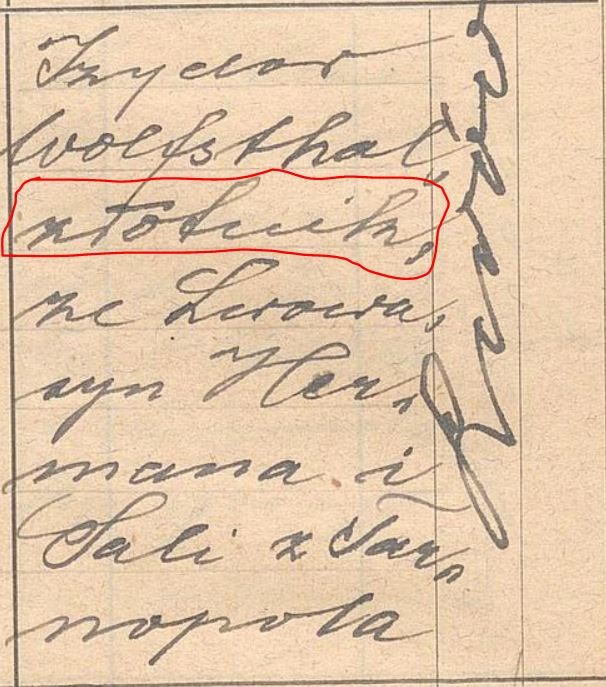 Izydor
Wolfsthal,
złotnik,
ze Lwowa,
syn Her-
mana i
Sali z Tar-
nopola